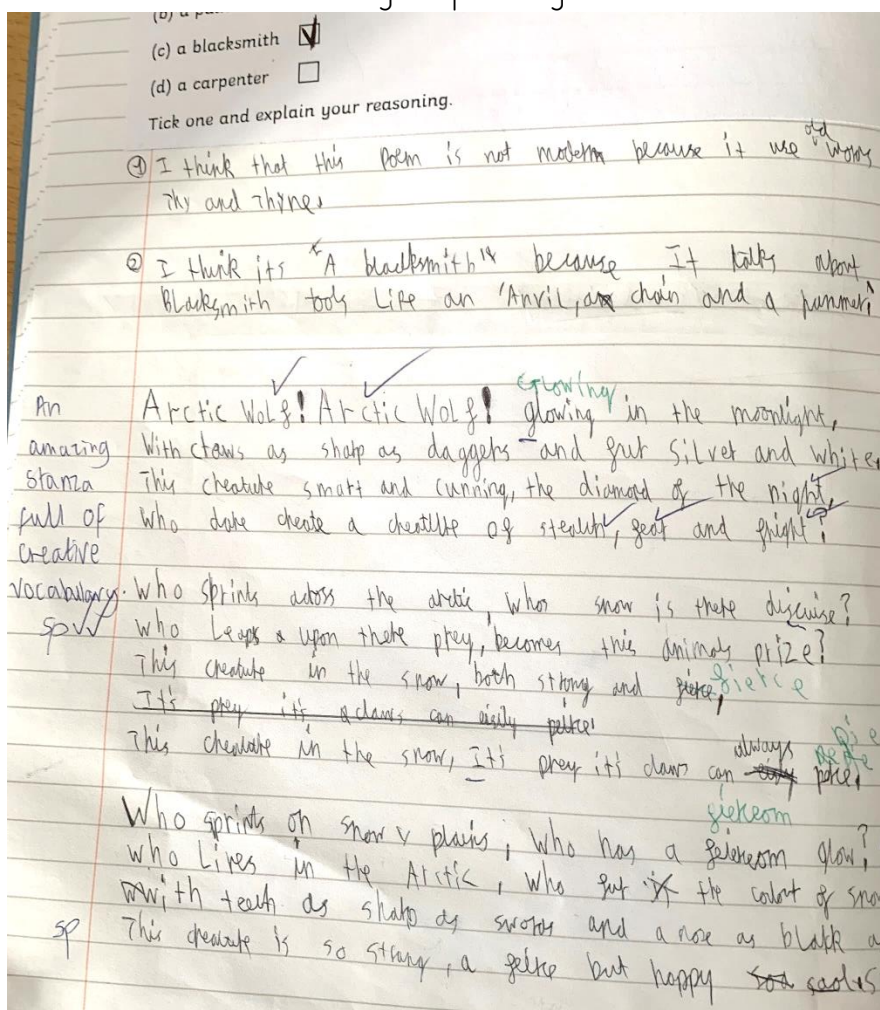 (c) a blacksmith
(d) a carpenter
Tick one and explain your reasoning.
① I think that this Poem is not modern because it use old words
Thy and Thyne.
② I think its "A blacksmith" because It talks about
Blacksmith tools Like an 'Anvil, chain and a
Glowing
Arctic Wolf! Arctic Wolf! glowing in the moonlight,
With claws as sharp as daggers and fur Silver and white,
This creature smart and cunning, the diamond of the night,
Who dare create a creature of stealth, fear and fright?
An
amazing
stanza
full of
creative
vocabulary.
sp
Who sprints across the arctic, whos snow is there discuise?
Who Leaps upon there prey, becomes this animals prize?
This creature in the snow, both strong and fierce
It's prey it's claws can easily
always
This creature in the snow, It's prey it's claws can
Who sprints on snow plains, Who has a glow?
Who Lives in the Arctic, Who fur the colour of sno
With teeth as sharp as swords and a nose as black a
sp
This creature is so strong, a but happy